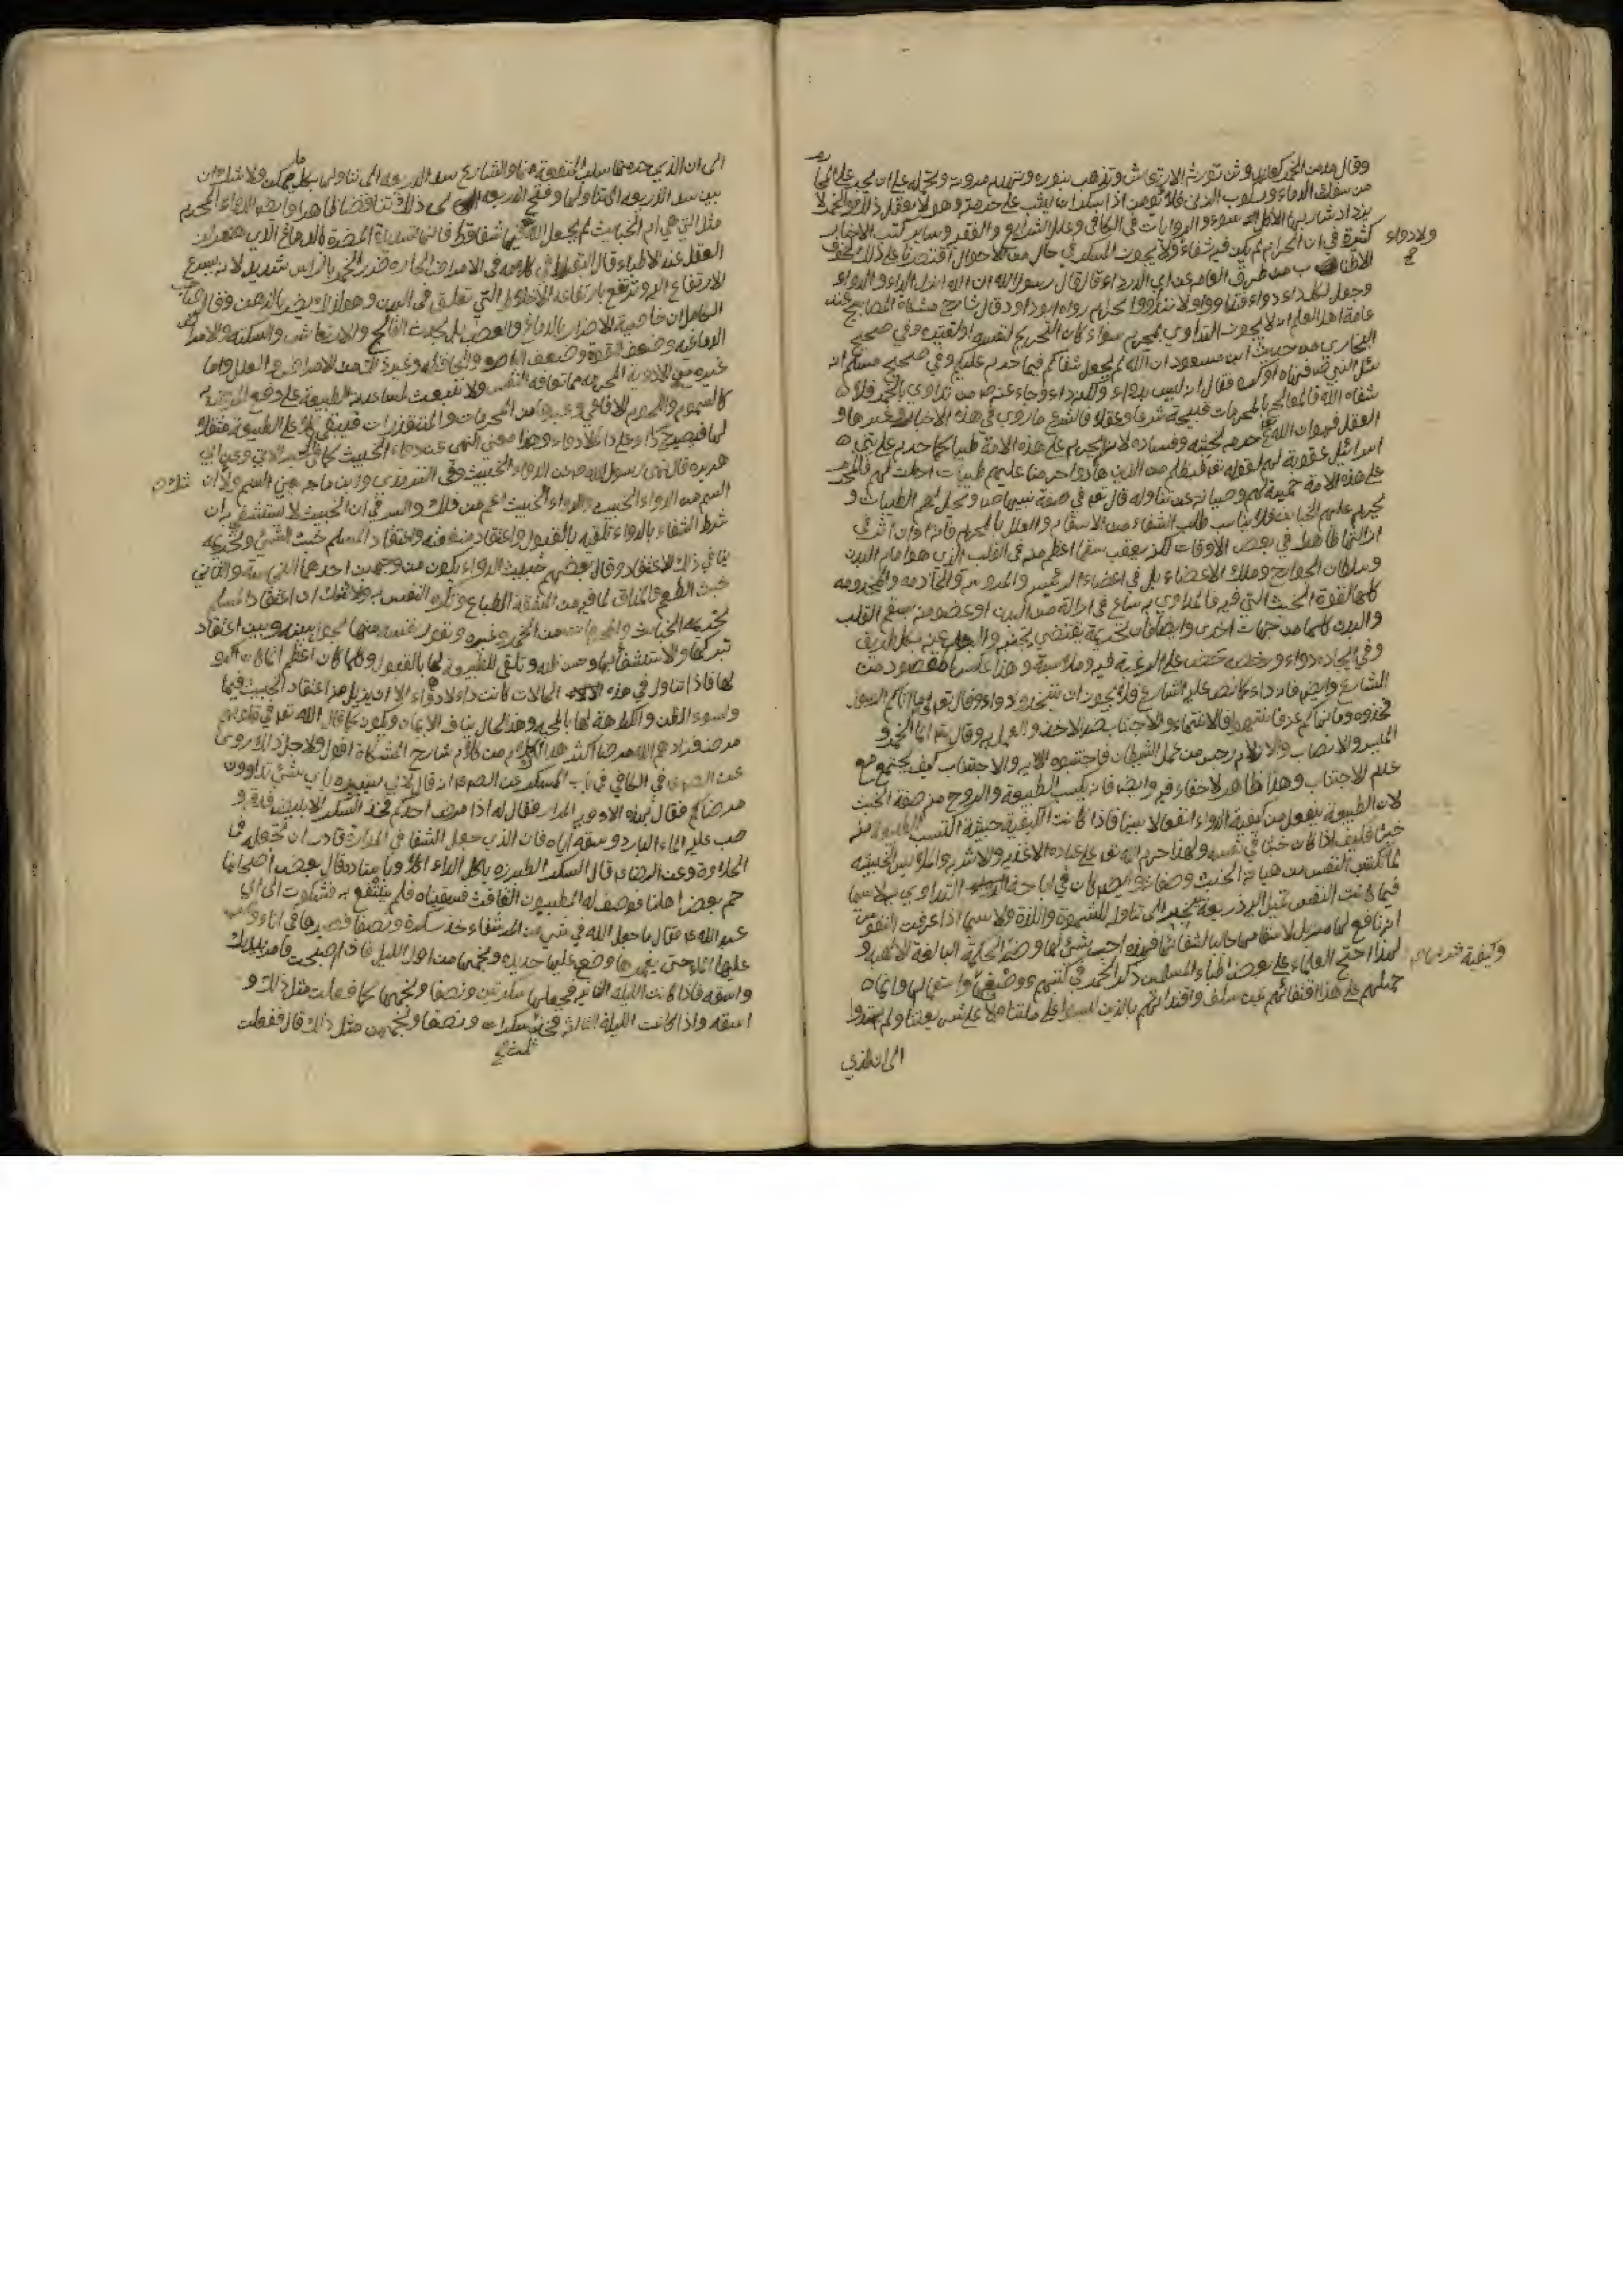 وقال مدمن الخمر كعابد وثن تورثه الارتعاش وتذهب بنوره وتهدم مروته وتحمله على ان يجسر على المحا رم
من سفك الدماء وركوب الزنى فلا يؤمن اذا سكر ان يثب على حرمه وهو لا يعقل ذلك والخمر لا
يزداد شاربها الا كل سوء والروايات في الكافي وعلل الشرايع والفقيه وساير كتب الاخبار
كثيرة في ان الحرام لم يكن فيه شفاء ولا يجوز المسكر في حال من الاحوال اقتصرنا على ذلك لخوف
ولا دواء
الاطناب من طرق العامه عن ابي الدرداء قال قال رسول الله ان الله انزل الداء والدواء
وجعل لكل داء دواء فتداووا ولا تتداووا بحرام رواه ابو داود قال شارح مشكاة المصابيح عند
عامة اهل العلم انه لا يجوز التداوي بمحرم سواء كان التحريم لنفسه او لغيره وفي صحيح
البخاري من حديث ابن مسعود ان الله لم يجعل شفائكم فيما حرم عليكم وفي صحيح مسلم انه
سئل النبي عنه فنهاه او كره فقال انه ليس بدواء ولكنه داء وجاء عنه من تداوى بالخمر فلا
شفاه الله فالمعالجة بالمحرمات قبيحة شرعا وعقلا فالشرع ما روي في هذه الاخبار وغيرها و
العقل فهو ان الله تع حرمه لخبثه وفساده لانه لم يحرم على هذه الامة طيبا كما حرم على بني
اسرائيل عقوبة لهم لقوله تع فبظلم من الذين هادوا حرمنا عليهم طيبات احلت لهم فالمحرم
على هذه الامة حمية لهم وصيانة عن تناوله قال تع في صفة نبينا ص ويحل لهم الطيبات و
يحرم عليهم الخبائث فلا يناسب طلب الشفاء من الاسقام والعلل بالمحرم فانه وان اثر في
ازالتها ظاهرا في بعض الاوقات لكنه يعقب سقما اعظم منه في القلب الذي هو امام البدن
وسلطان الجوارح وملك الاعضاء بل في اعضاء الرئيس والمرؤس والخادمه والمخدومه
كلها لقوة الخبث التي فيه فالمداوي به ساع في ازالة مرض البدن او عضو منه بسقم القلب
والبدن كلها من جهات اخرى وايضا فان تحريمه يقتضي تجنبه والبعد عنه بكل طريق
وفي اتخاذه دواء ورخصه حض على الرغبة فيه وملابسته وهذا عكس مقصود من
الشارع وايض فانه داء كما نص عليه الشارع فلا يجوز ان يتخذ دواء وقال تع وما اتاكم الرسول
فخذوه وما نهاكم عنه فانتهوا والانتهاء والاجتناب ضد الاخذ والعمل به وقال تع انما الخمر و
الميسر والانصاب والازلام رجس من عمل الشيطان فاجتنبوه الايه والاجتناب كيف يجتمع مع
عدم الاجتناب وهذا ظاهر لا خفاء فيه وايضا فانه يكسب الطبيعة والروح من صفة الخبث
لان الطبيعة ينفعل من كيفية الدواء انفعالا بينا فاذا كانت الكيفية خبيثة اكتسب الطبيعة منه
خبثا فكيف اذا كان خبيثا في نفسه ولهذا حرم الله تع على عباده الاغذيه والاشربه والملابس الخبيثه
لما تكسب النفس من هيات الخبث وصفاته وايضا كان في اباحة التداوي به لا سيما
فيما كانت النفس تميل اليه ذريعة الى تناوله للشهوة واللذة ولا سيما اذا عرفت النفوس
انه نافع لها مزيل لاسقامها جالب لشفائها فهذه احب شيء لها وضد الحكمة البالغة الالهيه و
لهذا احتج العلماء على بعض اطباء المسلمين ذكر الخمر في كتبهم ووضيفها واستعمالها وانما
وكيفية شربها
حملهم على هذا اقتفائهم عمن سلف واقتدائهم بالذين ليسوا على ملتنا ولا على شريعتنا ولم يهتدوا
الى ان الذي
الى ان الذي حرمها سلب المنفعة منها والشارع سد الذريعه الى تناولها بكل ممكن ولا شك ان
بين سد الذريعه الى تناولها وفتح الذريعه الى ذلك تناقضا ظاهرا وايضا الدواء المحرم
مثل التي هي ام الخبائث لم يجعل الله فيها شفا قط فانها شديدة المضرة بالدماغ الذي هو معدن
العقل عند الاطباء قال بقراط في كلامه في الامراض الحاره ضرر الخمر بالراس شديد لانه يسرع
الارتفاع اليه وترتفع بارتفاعه الاخلاط التي تعلق في البدن وهو لذلك يضر بالذهن وقال صاحب
الكامل ان خاصية الاضرار بالدماغ والعصب بل يحدث الفالج والارتعاش والسكته والامراض
الدماغيه وضعف القوة وضعف الباصره والحافظه وغيره من الامراض والعلل واما
غيره من الادوية المحرمه مما تعافه النفس ولا تنبعث لمساعدته الطبيعة على دفع المرض به
كالسموم ولحوم الافاعي وغيرها من المحرمات والمستقذرات فيبقى كلا على الطبيعة مثقلا
لها فيصير داء وعلى داء لا دواء وهذا معنى النهي عن دواء الخبيث كما في الخبر الاتي وعن ابي
هريره قال نهى رسول الله ص عن الدواء الخبيث وفي الترمذي وابن ماجه يعني السم ولا
السم من الدواء الخبيث والدواء الخبيث اعم من ذلك والسر في ان الخبيث لا يستشفى به ان
شرط الشفاء بالدواء تلقيه بالقبول واعتقاد منفعته واعتقاد المسلم خبث الشيء وتحريمه
ينافي ذلك الاعتقاد وقال بعضهم خبث الدواء يكون من وجهين احدهما النجاسة والثاني
خبث الطعم والمذاق لما فيه من المشقة الطباع وتكره النفس به ولا شك ان اعتقاد المسلم
تحريمه الخبائث والمحرمات من الخمر وغيره ونفور نفسه منها يحول بينه وبين اعتقاد
بركتها والاستشفاء بها وحسن ظنه وتلقي الطبيعة لها بالقبول وكلما كان اعظم ايمانا كان اكره
لها فاذا تناول في هذه الحالات كانت داء لا دواء الا ان يزيل من اعتقاد الخبيث فيها
وسوء الظن والكراهة لها بالمحبه وهذا الحال ينافي الايمان ويكون كما قال الله تع في قلوبهم
مرض فزادهم الله مرضا اكثر هذا الكلام من كلام شارح المشكاة اقول ولاجل ذلك روى
في الكافي في باب السكر عن الصادق انه قال لابي بشير باي شيء تداوون
مرضاكم فقال بهذه الادويه المرار فقال له اذا مرض احدكم فخذ السكر الابيض فدقه و
صب عليه الماء البارد وسقه اياه فان الذي جعل الشفا في المرارة قادر ان يجعله في
الحلاوة وعن الرضا ع قال السكر الطبرزد ياكل الداء اكلا وباسناده قال بعض اصحابنا
حم بعض اهلنا فوصف له المتطببون الغافث فسقيناه فلم ينتفع به فشكوت الى ابي
عبد الله ع فقال ما جعل الله في شيء من المر شفاء خذ سكرة ونصفا فصيرها في اناء وصب
عليها الماء حتى يغمرها وضع عليها حديده ونجمها من اول الليل فاذا اصبحت فامرسها بيدك
واسقه فاذا كانت الليله الثانيه فصيرها سكرتين ونصفا ونجمها كما فعلت مثل ذلك و
اسقه واذا كانت الليلة الثالثة فخذ ثلث سكرات ونصفا ونجمهن مثل ذلك قال ففعلت